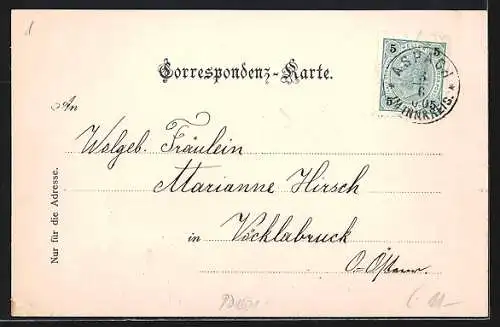 Correspondenz-Karte.
5 5
ASPACH
3
6
05
* INNKREIS. *
5
An
Wolgeb. Fräulein
Marianne Hirsch
in Vöcklabruck
O-Österr.
Nur für die Adresse.